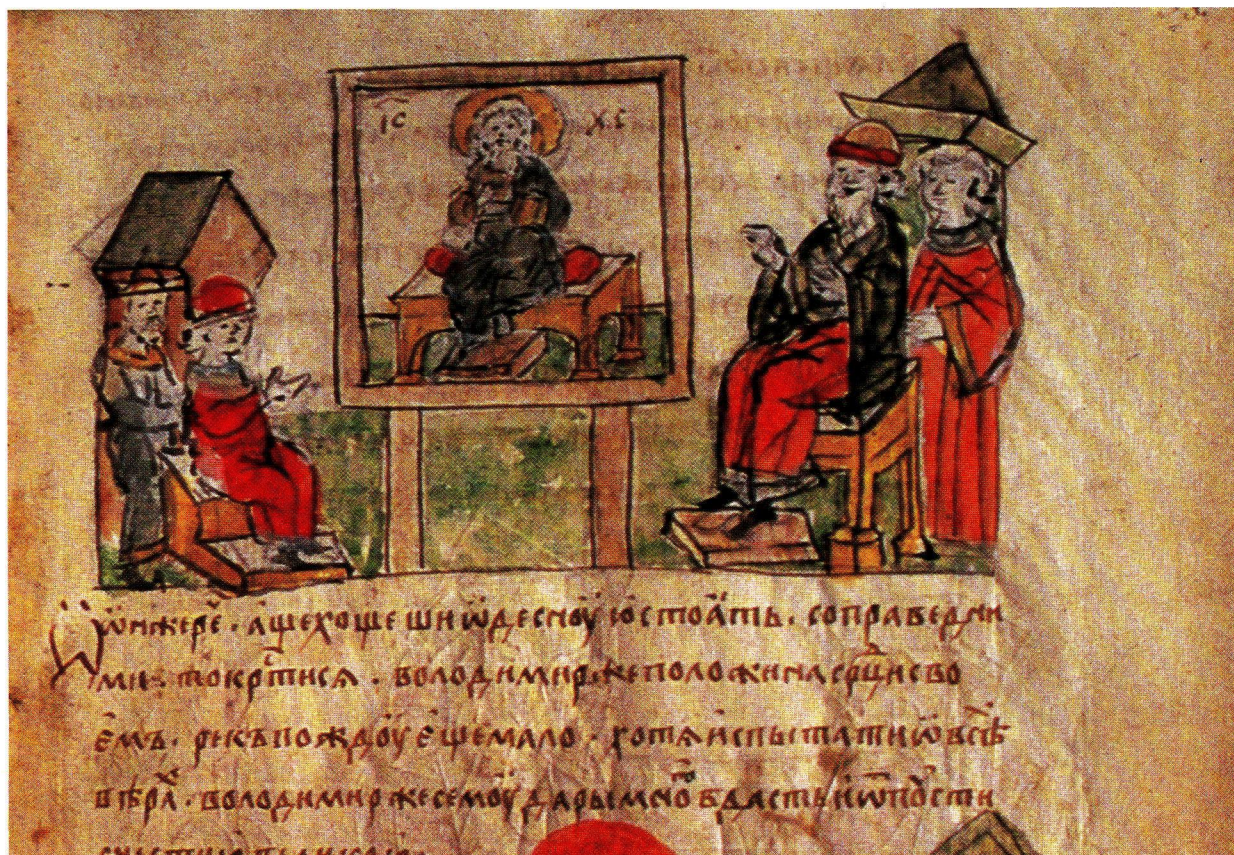 І҃С Х҃С
ѡнжерѐ · аще хощеши ѡдесноую стоꙗть · со праведни
ми · то кр҃тисꙗ · володимиръ же положи на срⷣци сво
емъ · рекъ пождоу еще мало · хотѧ испытати ѡ всѣⷯ
вѣраⷯ · володимиръ же семоу дары мноⷢ҇ вдасть и ѿпоусти